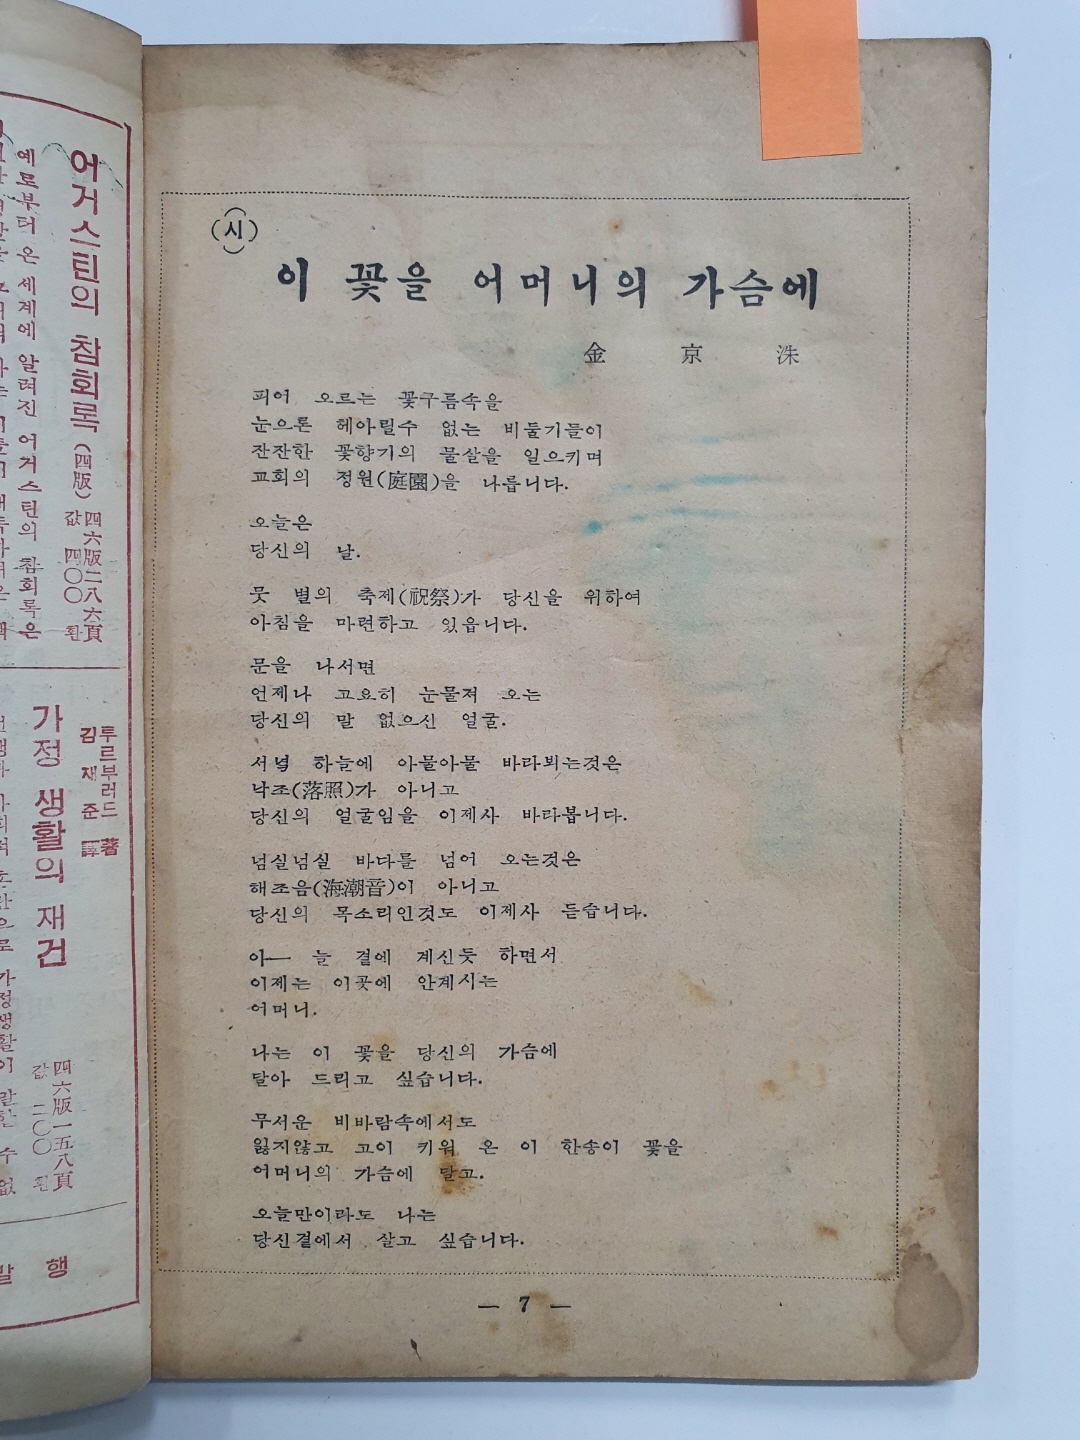 (시)
이 꽃을 어머니의 가슴에
金京洙
피어 오르는 꽃구름속을
눈으론 헤아릴수 없는 비둘기들이
잔잔한 꽃향기의 물살을 일으키며
교회의 정원(庭園)을 나릅니다.
오늘은
당신의 날.
뭇 별의 축제(祝祭)가 당신을 위하여
아침을 마련하고 있읍니다.
문을 나서면
언제나 고요히 눈물져 오는
당신의 말 없으신 얼굴.
서녘 하늘에 아물아물 바라뵈는것은
낙조(落照)가 아니고
당신의 얼굴임을 이제사 바라봅니다.
넘실넘실 바다를 넘어 오는것은
해조음(海潮音)이 아니고
당신의 목소리인것도 이제사 듣습니다.
아— 늘 곁에 계신듯 하면서
이제는 이곳에 안계시는
어머니.
나는 이 꽃을 당신의 가슴에
달아 드리고 싶습니다.
무서운 비바람속에서도
잃지않고 고이 키워 온 이 한송이 꽃을
어머니의 가슴에 달고.
오늘만이라도 나는
당신곁에서 살고 싶습니다.
— 7 —
어거스틴의 참회록 (四版)
四六版二八六頁
값 四〇〇환
예로부터 온 세계에 알려진 어거스틴의 참회록은
투르부러드 著
김재준 譯
가정 생활의 재건
四六版一五八頁
값 二〇〇환
발행